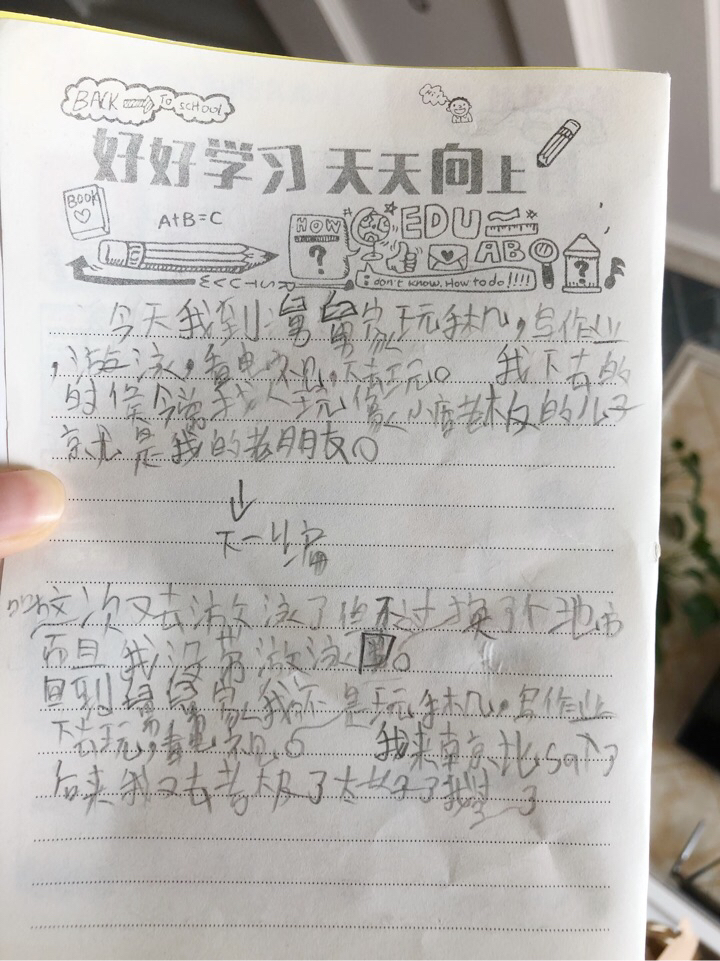 BACK TO SCHOOL
Hi
好好学习 天天向上
BOOK
A+B=C
HOW
?
EDU
ABC
?
RSTUVW
i don't know. How to do!!!!
今天我到舅舅家玩手机,写作业
,游泳,看电视,下去玩。 我下去的
时候 我 玩像小店老板的儿子
就是我的老朋友。
↓
下一篇
这次又去游泳了但不过换了个地方
而且我没带游泳圈。
回到舅舅家我还是玩手机,写作业
下去玩,看电视。 我来南京比 了
后来我又去 了太 了我 了